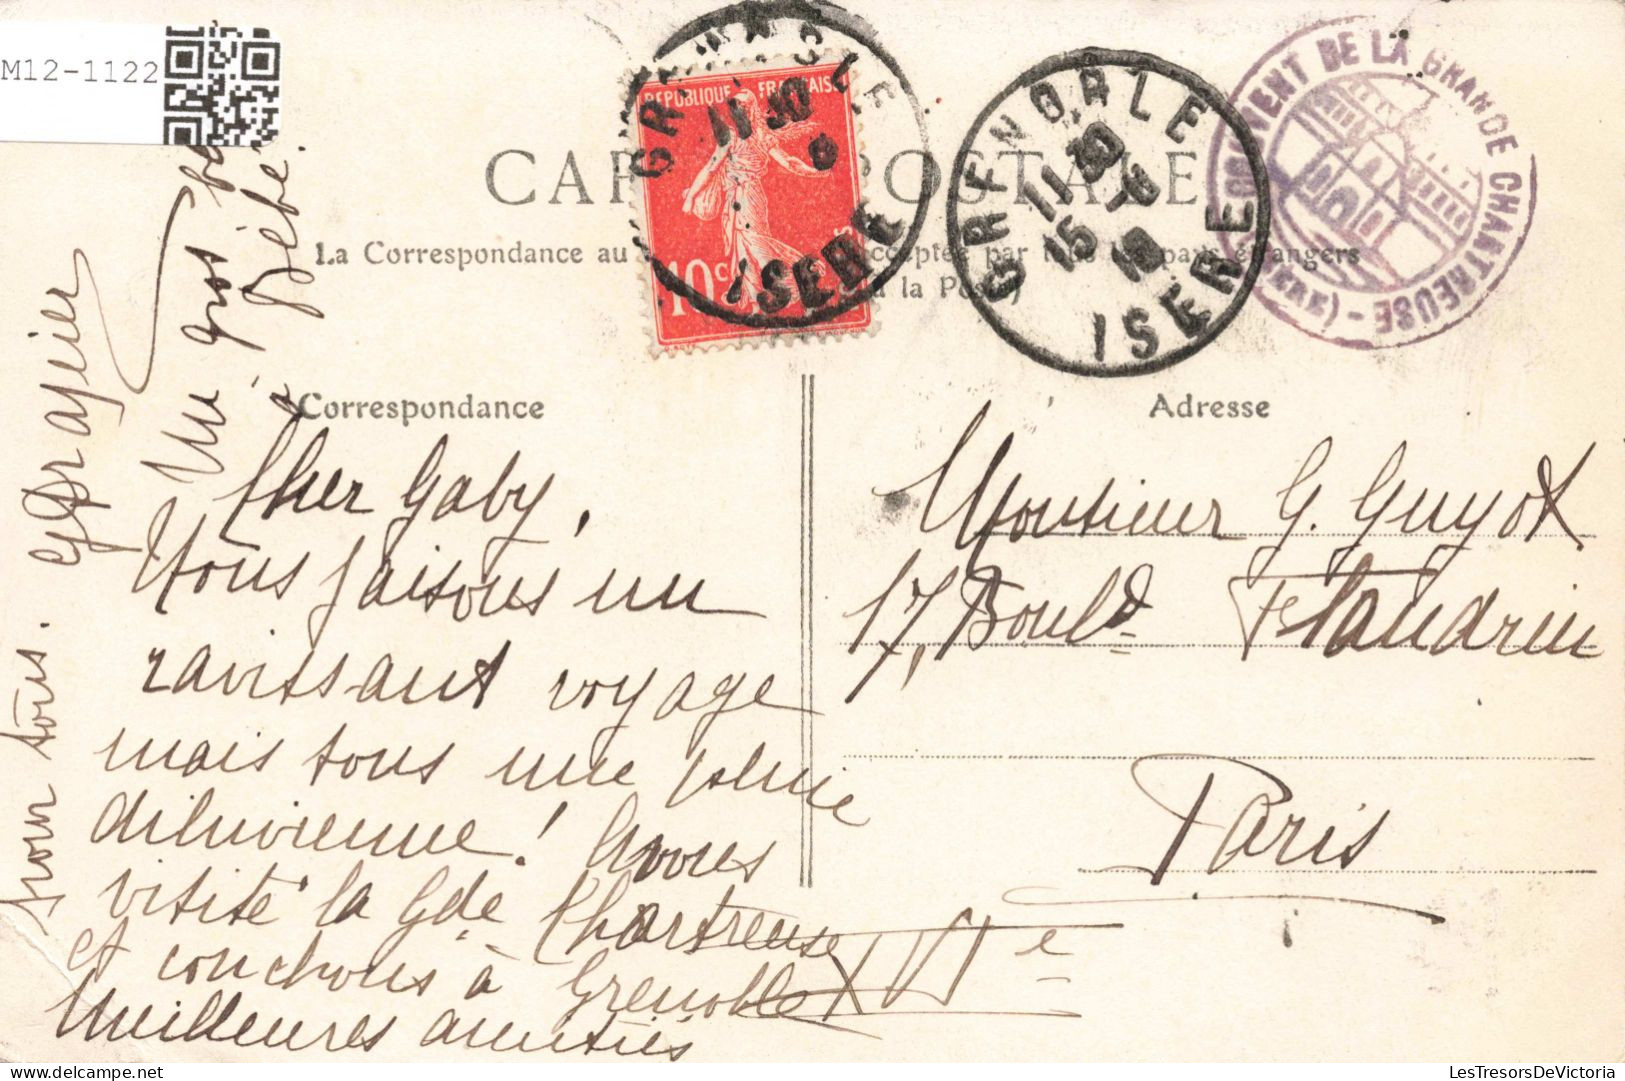 M12-1122
CARTE POSTALE
La Correspondance au acceptée par tous les pays étrangers
à la Poste)
REPUBLIQUE FRANÇAISE
10c
GRENOBLE
11 30
ISERE
GRENOBLE
11 30
15 -6
10
ISERE
LOGEMENT DE LA GRANDE CHARTREUSE - (ISERE)
Correspondance
Cher Gaby,
Nous faisons un
ravissant voyage
mais sous une pluie
diluvienne! Avons
visité la Gde Chartreuse
et couchons à Grenoble
Meilleures amitiés
pour tous.
Un gros
à Bébé.
Adresse
Monsieur G. Guyot
17, Bould Flandrin
Paris
XVIe
LesTresorsDeVictoria